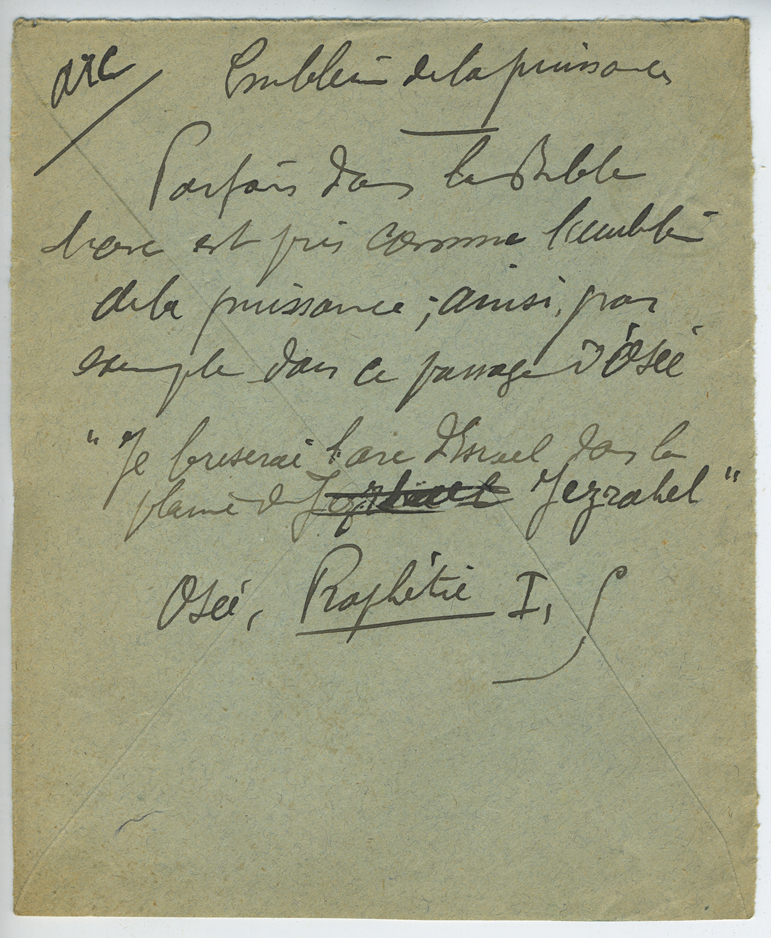 arc Emblème de la puissance
Parfois dans la Bible
l'arc est pris comme l'emblème
de la puissance ; ainsi, par
exemple dans ce passage d'Osée
" Je briserai l'arc d'Israel dans la
plaine de Jezrahel Jezrahel "
Osée, Prophétie I, 5